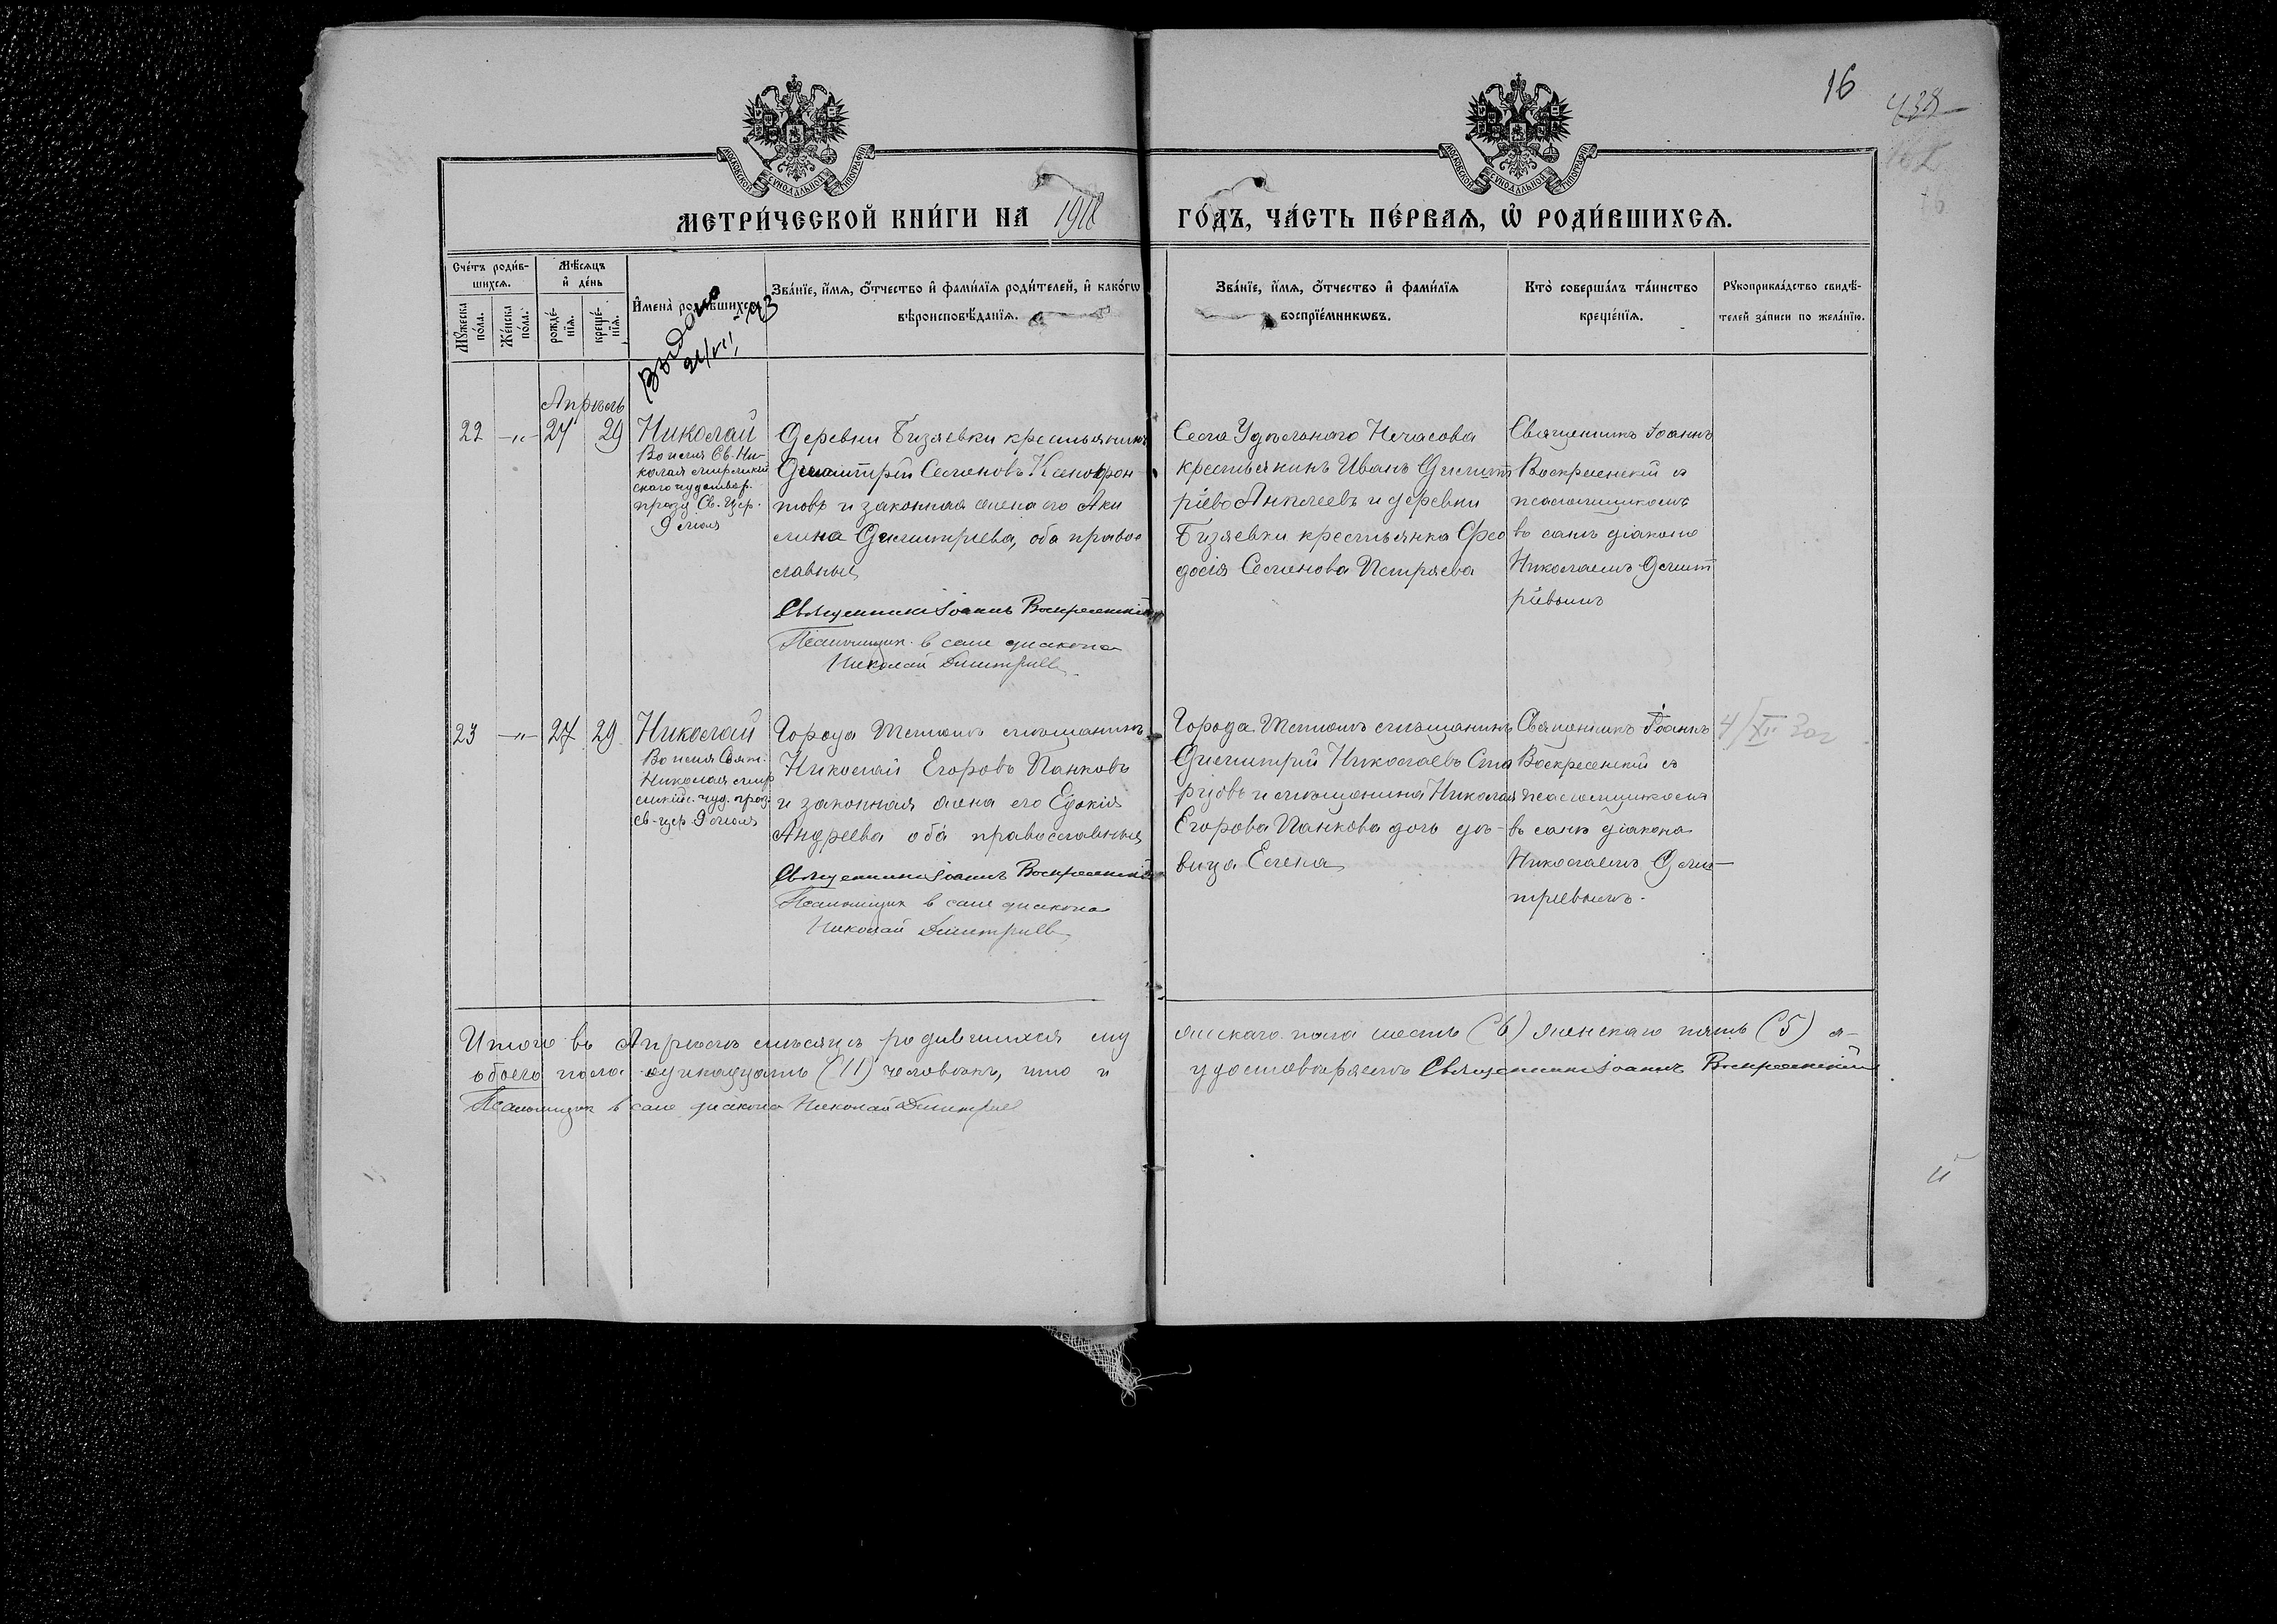 16
438
МОСКОВСКОЙ СУНОДАЛЬНОЙ ТИПОГРАФІИ
МОСКОВСКОЙ СУНОДАЛЬНОЙ ТИПОГРАФІИ
МЕТРИ́ЧЕСКОЙ КНИ́ГИ НА 1918 ГО́ДЪ, ЧА́СТЬ ПЕ́РВАѦ, Ѡ РОДИ́ВШИХСѦ.
Сче́тъ роди́в-
шихсѧ.
Мꙋжеска
пола.
Же́нска
по́ла.
Мѣ́сѧцъ
и де́нь
рожде́-
нїѧ.
креще́-
нїѧ.
Имена̀ роди́вшихсѧ.
Выдано
21/VII
43
Зва́нїе, и́мѧ, ѻ́тчество и фами́лїѧ роди́телей, и како́гѡ
вѣроисповѣ́данїѧ.
Зва́нїе, и́мѧ, ѻ́тчество и фами́лїѧ
воспрїе́мникѡвъ.
Кто̀ соверша́лъ та́инство
креще́нїѧ.
Рꙋкоприкла́дство свидѣ́-
телей за́писи по жела́нїю.
Апрѣль
22 -"- 27 29 Николай
Во имя Св. Ни-
колая мирликій
скаго чудотвор.
празд Св. Цер.
9 мая
Деревни Бизяевки крестьянинъ
Димитрій Семеновъ Ксенофон
товъ и законная жена его Аки
лина Димитриева, оба право
славные
Священникъ Іоаннъ Воскресенскій
Псаломщик в сане диакона
Николай Димитриев
Села Удѣльнаго Нечасова
крестьянинъ Иванъ Димит
ріевъ Аникеевъ и деревни
Бизяевки крестьянка Фео
досія Семенова Петряева
Священникъ Іоаннъ
Воскресенскій съ
псаломщикомъ
въ санѣ діакона
Николаемъ Димит
ріевымъ
23 -"- 27 29 Николай
Во имя Свят.
Николая мир
ликій. чуд. праз.
св. цер 9 мая
Города Тетюшъ мѣщанинъ
Николай Егоровъ Панковъ
и законная жена его Евдокія
Андреева оба православные
Священникъ Іоаннъ Воскресенскій
Псаломщик в сане диакона
Николай Димитриев
Города Тетюшъ мѣщанинъ
Димитрій Николаевъ Ста
руовъ и мѣщанина Николая
Егорова Панкова дочь дѣ-
вица Елена
Священникъ Іоаннъ
Воскресенскій съ
псаломщикомъ
въ санѣ діакона
Николаемъ Дими-
тріевымъ.
4/XII Заг
Итого въ Апрѣлѣ мѣсяцѣ родившихся му
жескаго пола шесть (6) женскаго пять (5) а
обоего пола одинадцать (11) человѣкъ, что и
удостовѣряемъ Священникъ Іоаннъ Воскресенскій
Псаломщик в сане диакона Николай Димитриев